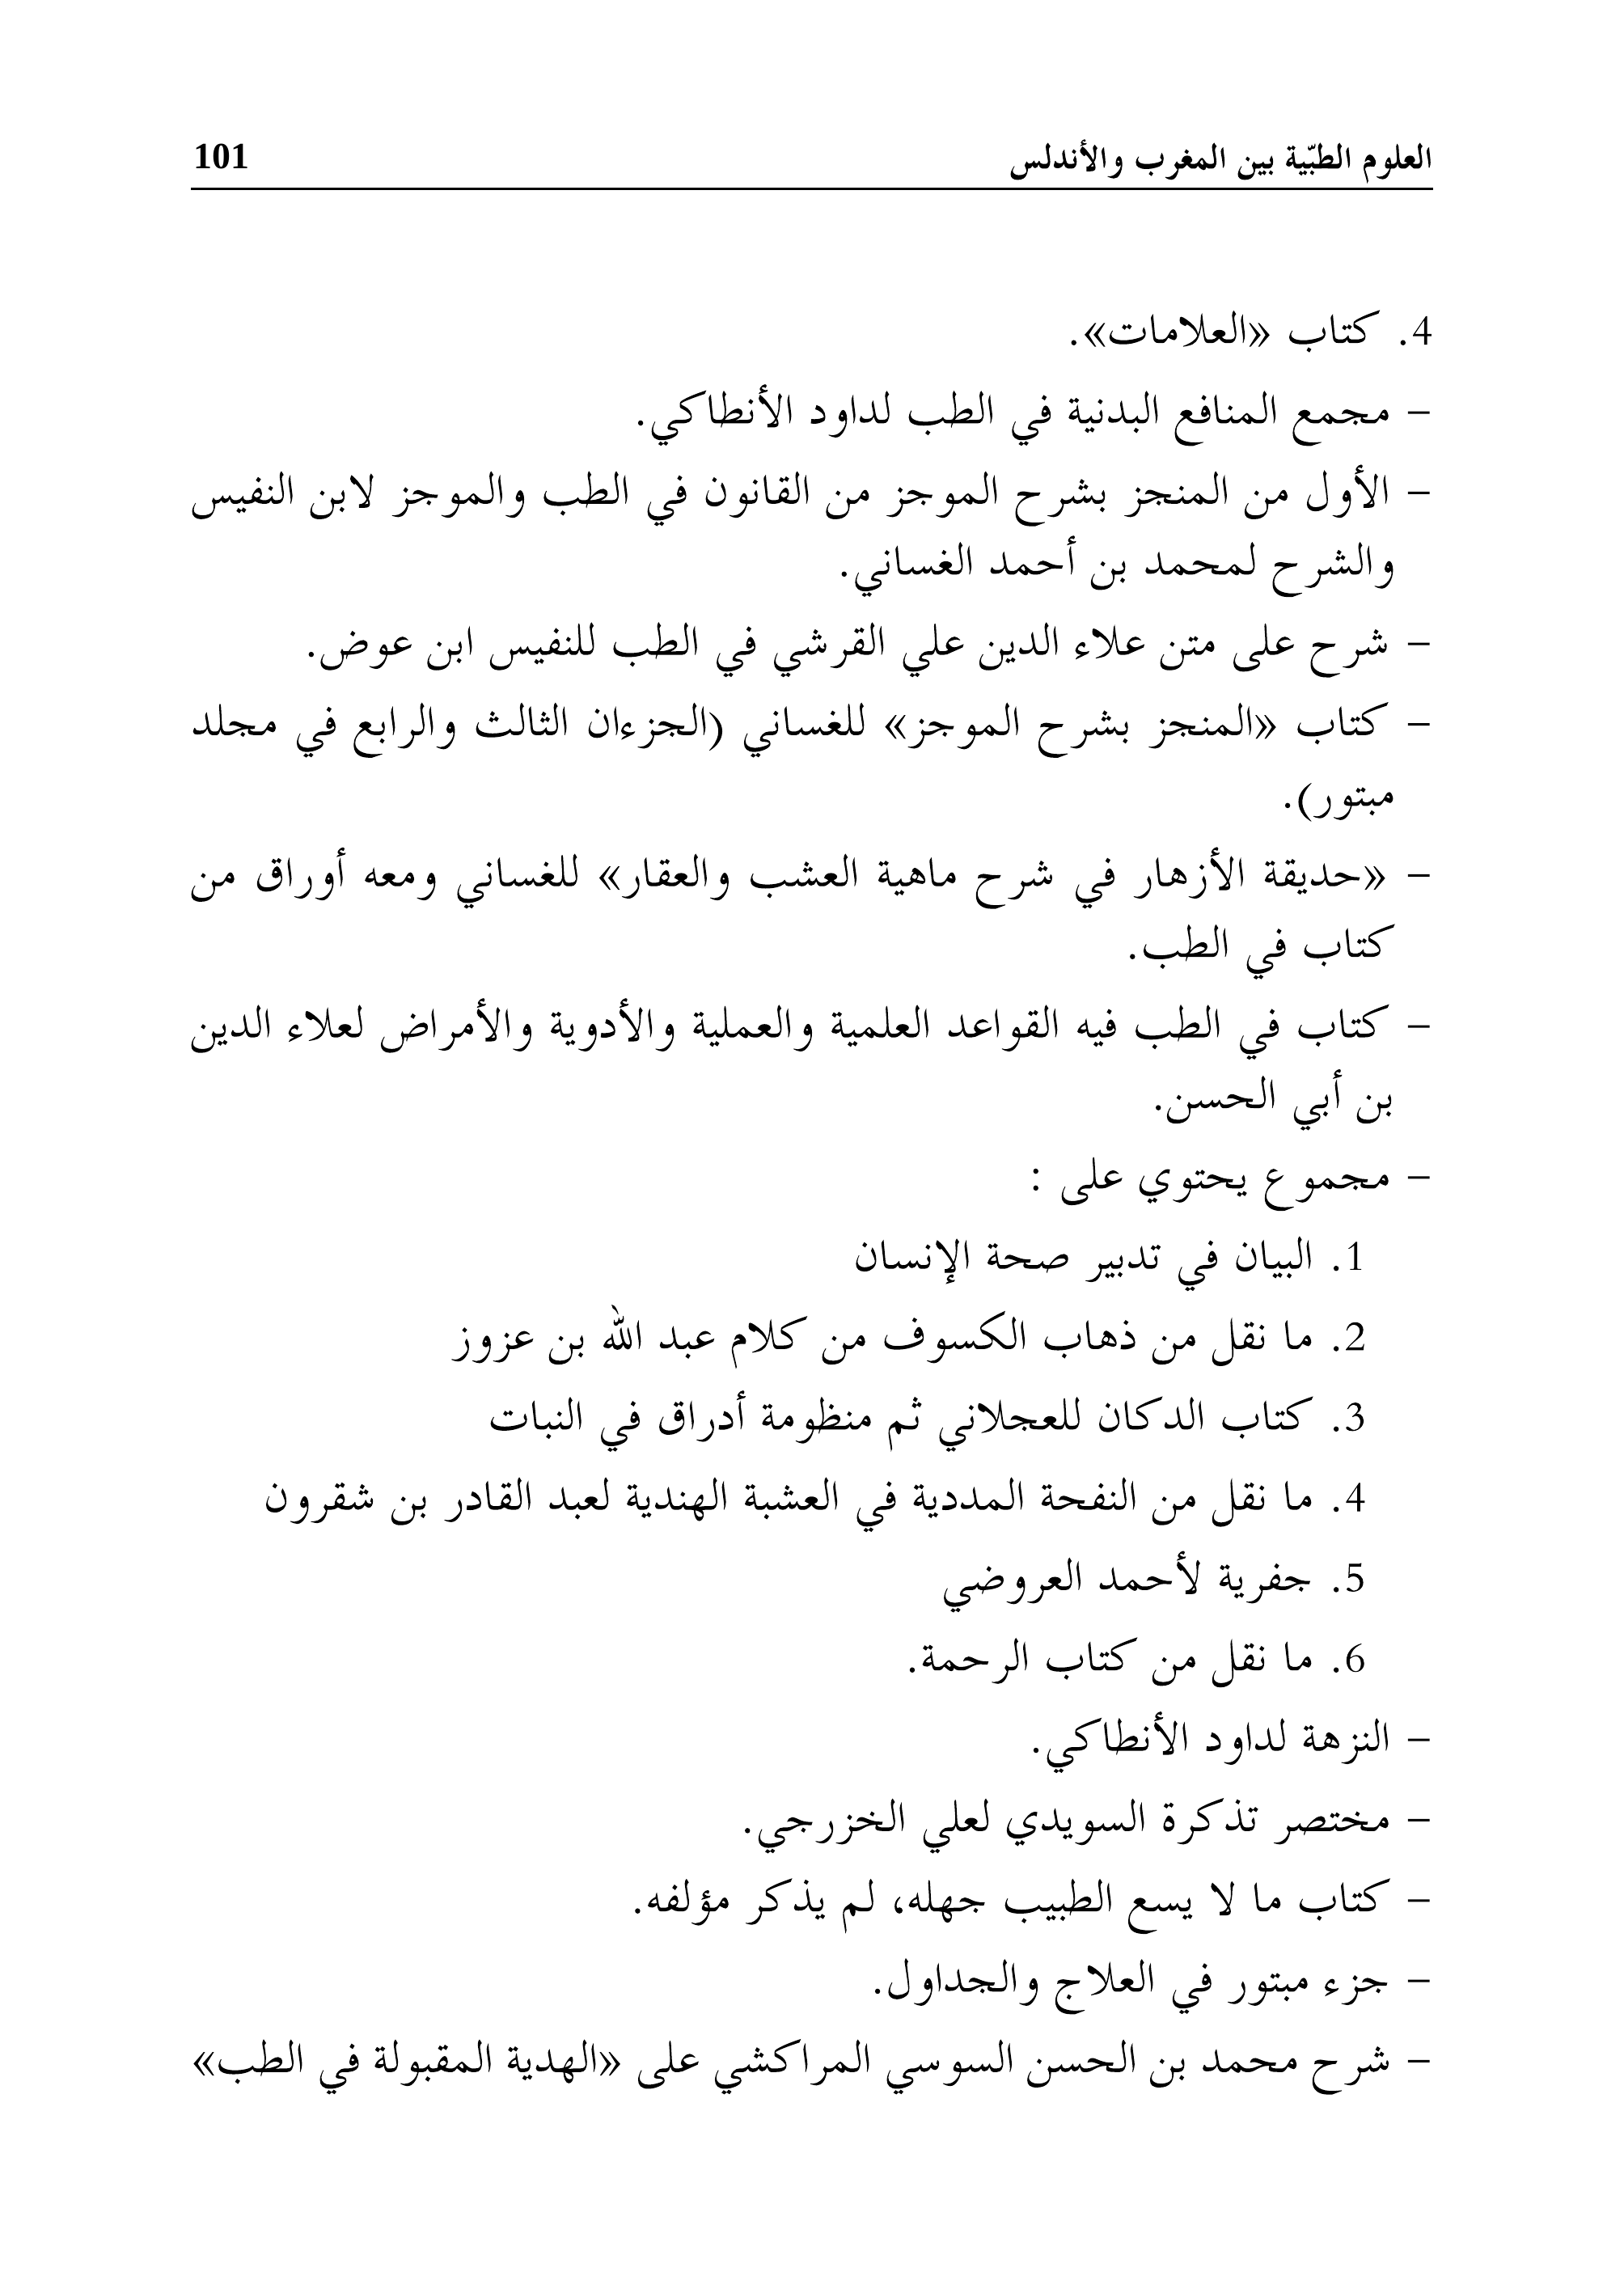 العلوم الطبّية بين المغرب والأندلس 101
4. كتاب «العلامات».
– مجمع المنافع البدنية في الطب لداود الأنطاكي.
– الأول من المنجز بشرح الموجز من القانون في الطب والموجز لابن النفيس
والشرح لمحمد بن أحمد الغساني.
– شرح على متن علاء الدين علي القرشي في الطب للنفيس ابن عوض.
– كتاب «المنجز بشرح الموجز» للغساني (الجزءان الثالث والرابع في مجلد
مبتور).
– «حديقة الأزهار في شرح ماهية العشب والعقار» للغساني ومعه أوراق من
كتاب في الطب.
– كتاب في الطب فيه القواعد العلمية والعملية والأدوية والأمراض لعلاء الدين
بن أبي الحسن.
– مجموع يحتوي على :
1. البيان في تدبير صحة الإنسان
2. ما نقل من ذهاب الكسوف من كلام عبد الله بن عزوز
3. كتاب الدكان للعجلاني ثم منظومة أدراق في النبات
4. ما نقل من النفحة المددية في العشبة الهندية لعبد القادر بن شقرون
5. جفرية لأحمد العروضي
6. ما نقل من كتاب الرحمة.
– النزهة لداود الأنطاكي.
– مختصر تذكرة السويدي لعلي الخزرجي.
– كتاب ما لا يسع الطبيب جهله، لم يذكر مؤلفه.
– جزء مبتور في العلاج والجداول.
– شرح محمد بن الحسن السوسي المراكشي على «الهدية المقبولة في الطب»